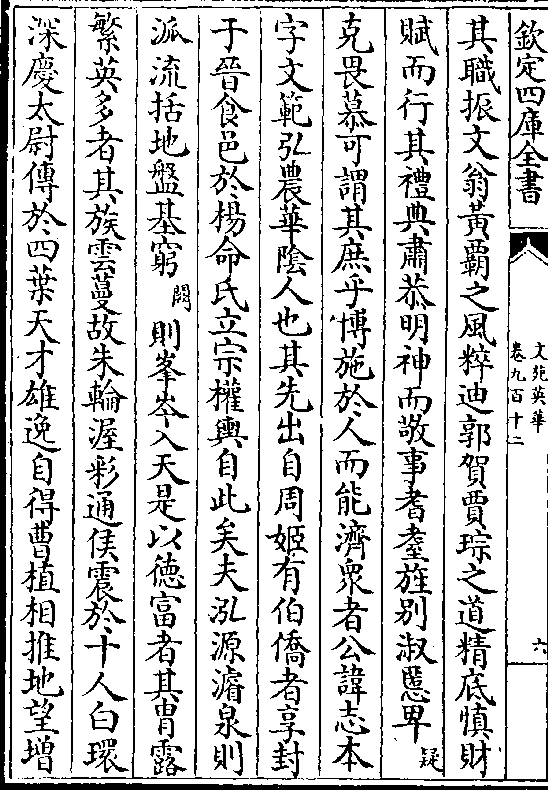 欽定四庫全書
文苑英華
卷九百十二
六
其職振文翁黃霸之風粹迪郭賀賈琮之道精底慎財
賦而行其禮典肅恭明神而敬事耆耋旌别淑慝畢疑
克畏慕可謂其庶乎博施於人而能濟衆者公諱志本
字文範弘農華隂人也其先出自周姬有伯僑者享封
于晉食邑於楊命氏立宗權輿自此矣夫泓源濬泉則
派流括地盤基窮闕則峯岑入天是以德富者其胄露
繁英多者其族雲蔓故朱輪渥彩通侯震於十人白環
深慶太尉傳於四葉天才雄逸自得曹植相推地望增